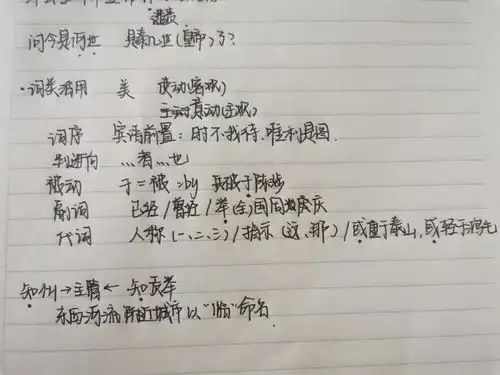 问今是何世 是秦几世(皇帝)了?
·词类活用 美 使动(客观)
意动(主观)
词序 宾语前置:时不我待.唯利是图.
判断句 …者…也
被动 于=被=by 兵破于陈涉
副词 已经/曾经/举(全)国同庆
代词 人称(一、二、三)/指示(这、那)/或重于泰山,或轻于鸿毛
知州→主管←知贡举
东西河流附近城市以“临”命名.